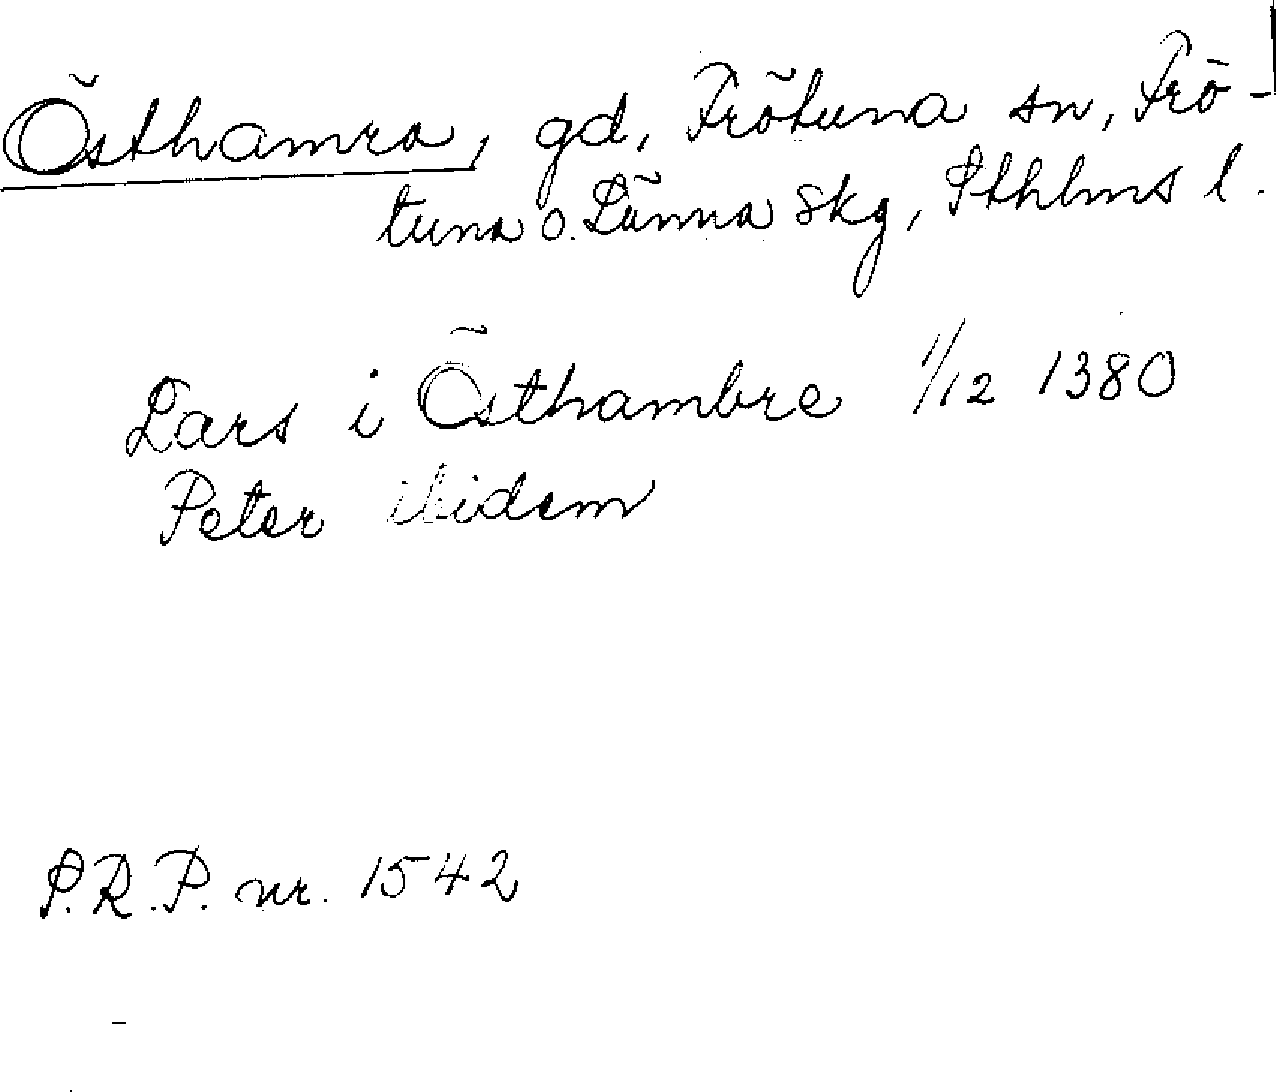 Östhamra, gd, Frötuna sn, Frö-
tuna o. Länna skg, Sthlms l.
Lars i Östhambre 1/12 1380
Peter ibidem
S.R.P. nr. 1542